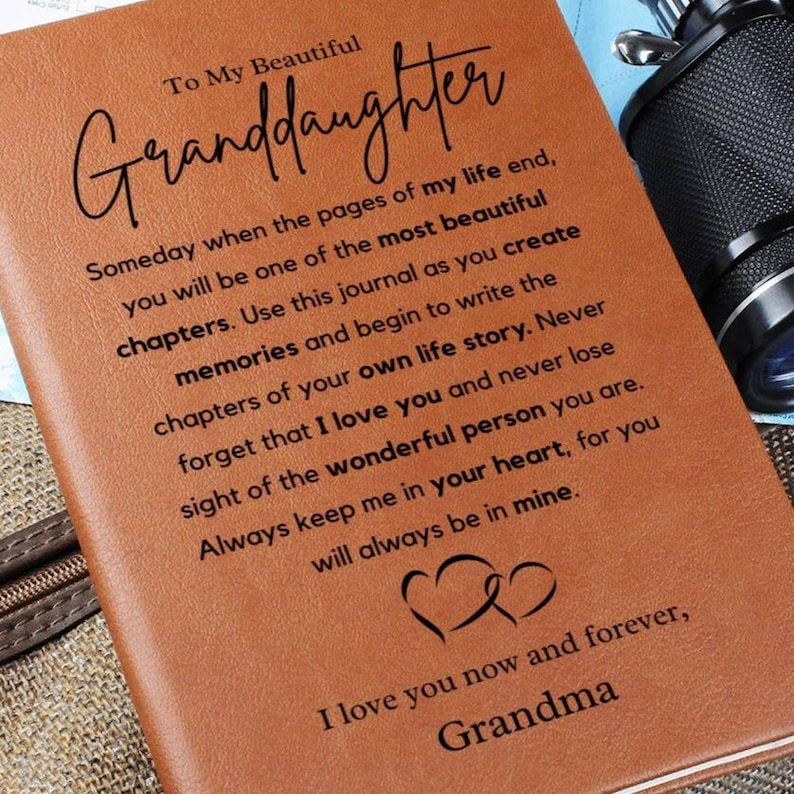 To My Beautiful
Granddaughter
Someday when the pages of my life end,
you will be one of the most beautiful
chapters. Use this journal as you create
memories and begin to write the
chapters of your own life story. Never
forget that I love you and never lose
sight of the wonderful person you are.
Always keep me in your heart, for you
will always be in mine.
I love you now and forever,
Grandma